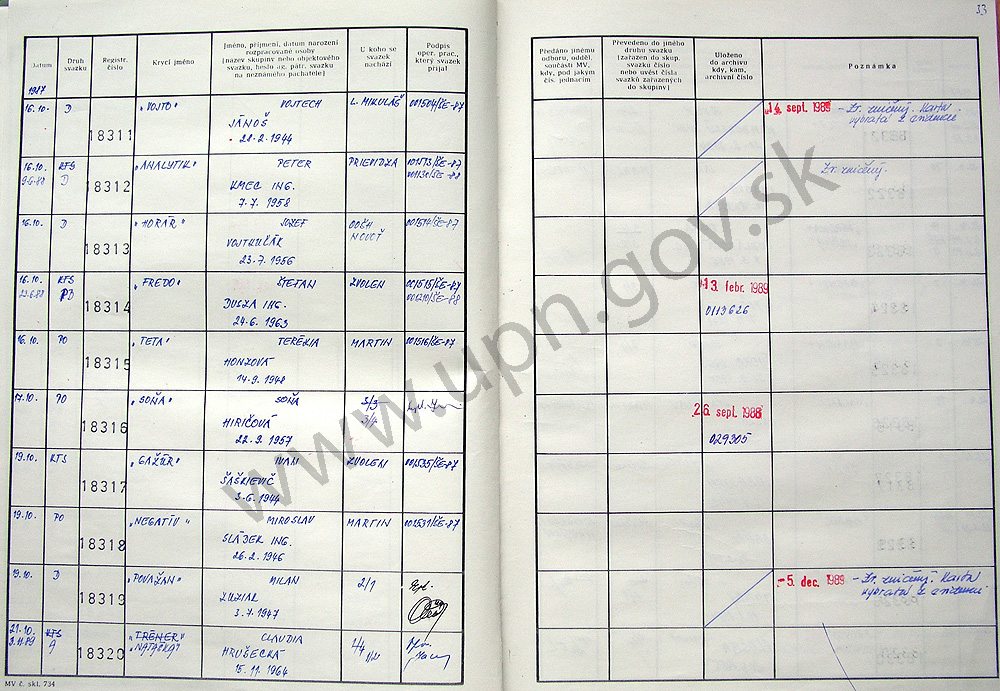 33
Datum
Druh svazku
Registr. číslo
Krycí jméno
Jméno, příjmení, datum narození rozpracované osoby (název skupiny nebo objektového svazku, heslo ag. pátr. svazku na neznámého pachatele)
U koho se svazek nachází
Podpis oper. prac., který svazek přijal
Předáno jinému odboru, odděl. součásti MV, kdy, pod jakým čís. jednacím
Převedeno do jiného druhu svazku (zařazen do skup. svazku číslo nebo uvést čísla svazků zařazených do skupiny)
Uloženo do archivu kdy, kam, archivní číslo
Poznámka
1987
16.10. D 18311 "VOJTO" VOJTECH L. MIKULÁŠ 001504/ŠE-87
JÁNOŠ
28.2.1944
14. sept. 1989 - Zv. zničený. Karta
vybratá z evidencie
16.10. KTS 18312 "ANALYTIK" PETER PRIEVIDZA 001513/ŠE-87
D
KMEC ING.
7.7.1958
Zv. zničený.
16.10. D 18313 "HORÁR" JOZEF OOŠH 001514/ŠE-87
VOJTKULIAK
23.7.1956
16.10. KTS 18314 "FREDO" ŠTEFAN ZVOLEN 001515/ŠE-87
DUSZA ING.
24.6.1963
13. febr. 1989
0113626
16.10. PO 18315 "TETA" TERÉZIA MARTIN 001516/ŠE-87
HONZOVÁ
14.9.1948
17.10. PO 18316 "SOŇA" SOŇA 5/3
HIRIČOVÁ
22.9.1957
26. sept. 1988
029305
19.10. KTS 18317 "GAŽÚR" IVAN ZVOLEN 001535/ŠE-87
ŠAŠKIEVIČ
3.6.1944
19.10. PO 18318 "NEGATÍV" MIROSLAV MARTIN 001531/ŠE-87
SLÁDEK ING.
26.2.1946
19.10. D 18319 "POVAŽAN" MILAN 2/1
KUZIAK
3.7.1947
5. dec. 1989 - Zv. zničený. Karta
vybratá z evidencie
21.10. KTS 18320 "TRÉNER" CLAUDIA
A "NATAŠKA"
HRUŠECKÁ
15.11.1964
MV č. skl. 734
www.upn.gov.sk